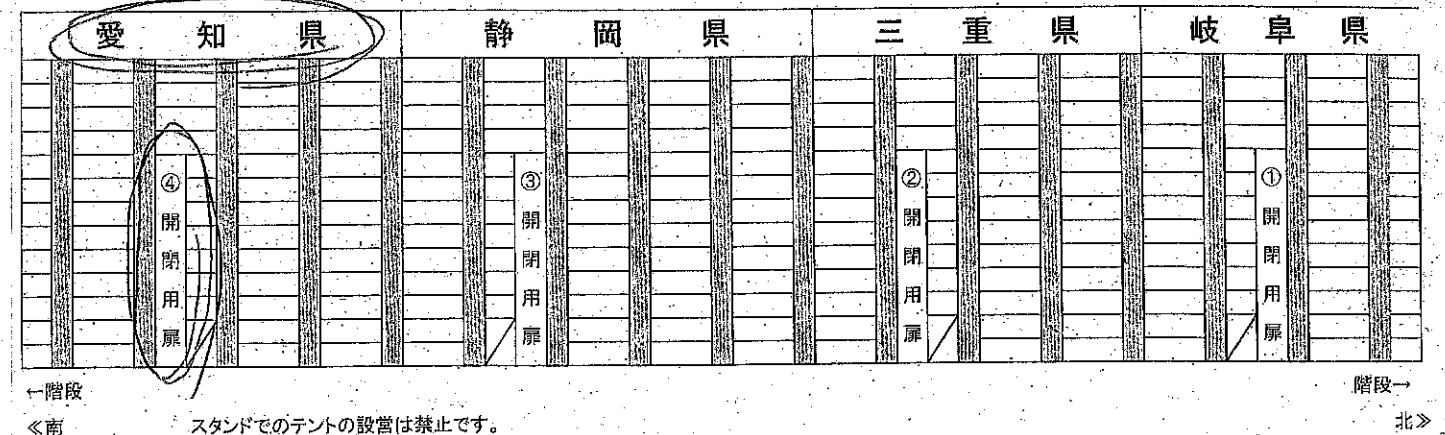 愛知県 静岡県 三重県 岐阜県
④開閉用扉 ③開閉用扉 ②開閉用扉 ①開閉用扉
←階段 階段→
≪南 スタンドでのテントの設営は禁止です。 北≫